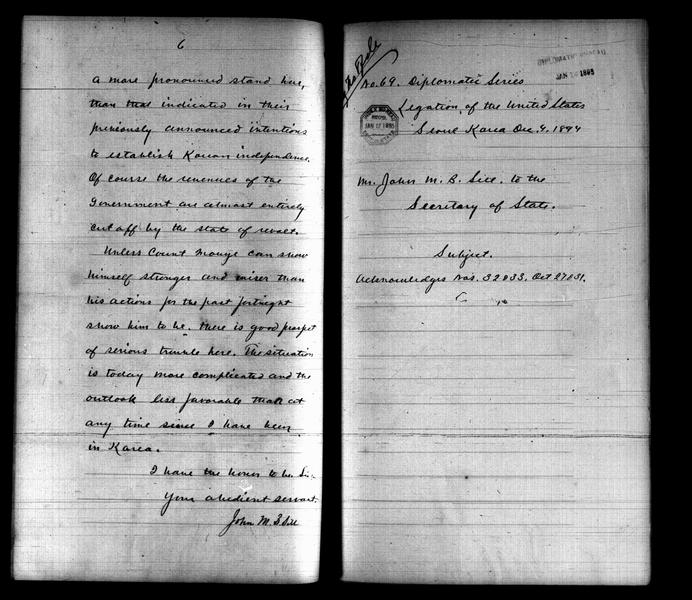 6
a more pronounced stand here,
than that indicated in their
previously announced intentions
to establish Korean independence.
Of course the revenues of the
Government are almost entirely
cut off by the state of revolt.
Unless Count Inouye can show
himself stronger and wiser than
his actions for the past fortnight
show him to be, there is good prospect
of serious trouble here. The situation
is today more complicated and the
outlook less favorable than at
any time since I have been
in Korea.
I have the honor to be Sir
Your obedient servant
John M. B. Sill
DIPLOMATIC BUREAU
JAN 1895
No. 69. Diplomatic Series
Legation of the United States
Seoul Korea Dec. 9, 1894
JAN 12 1895
Mr. John M. B. Sill to the
Secretary of State.
Subject.
Acknowledges Nos. 32 & 33. Oct 27 & 31.